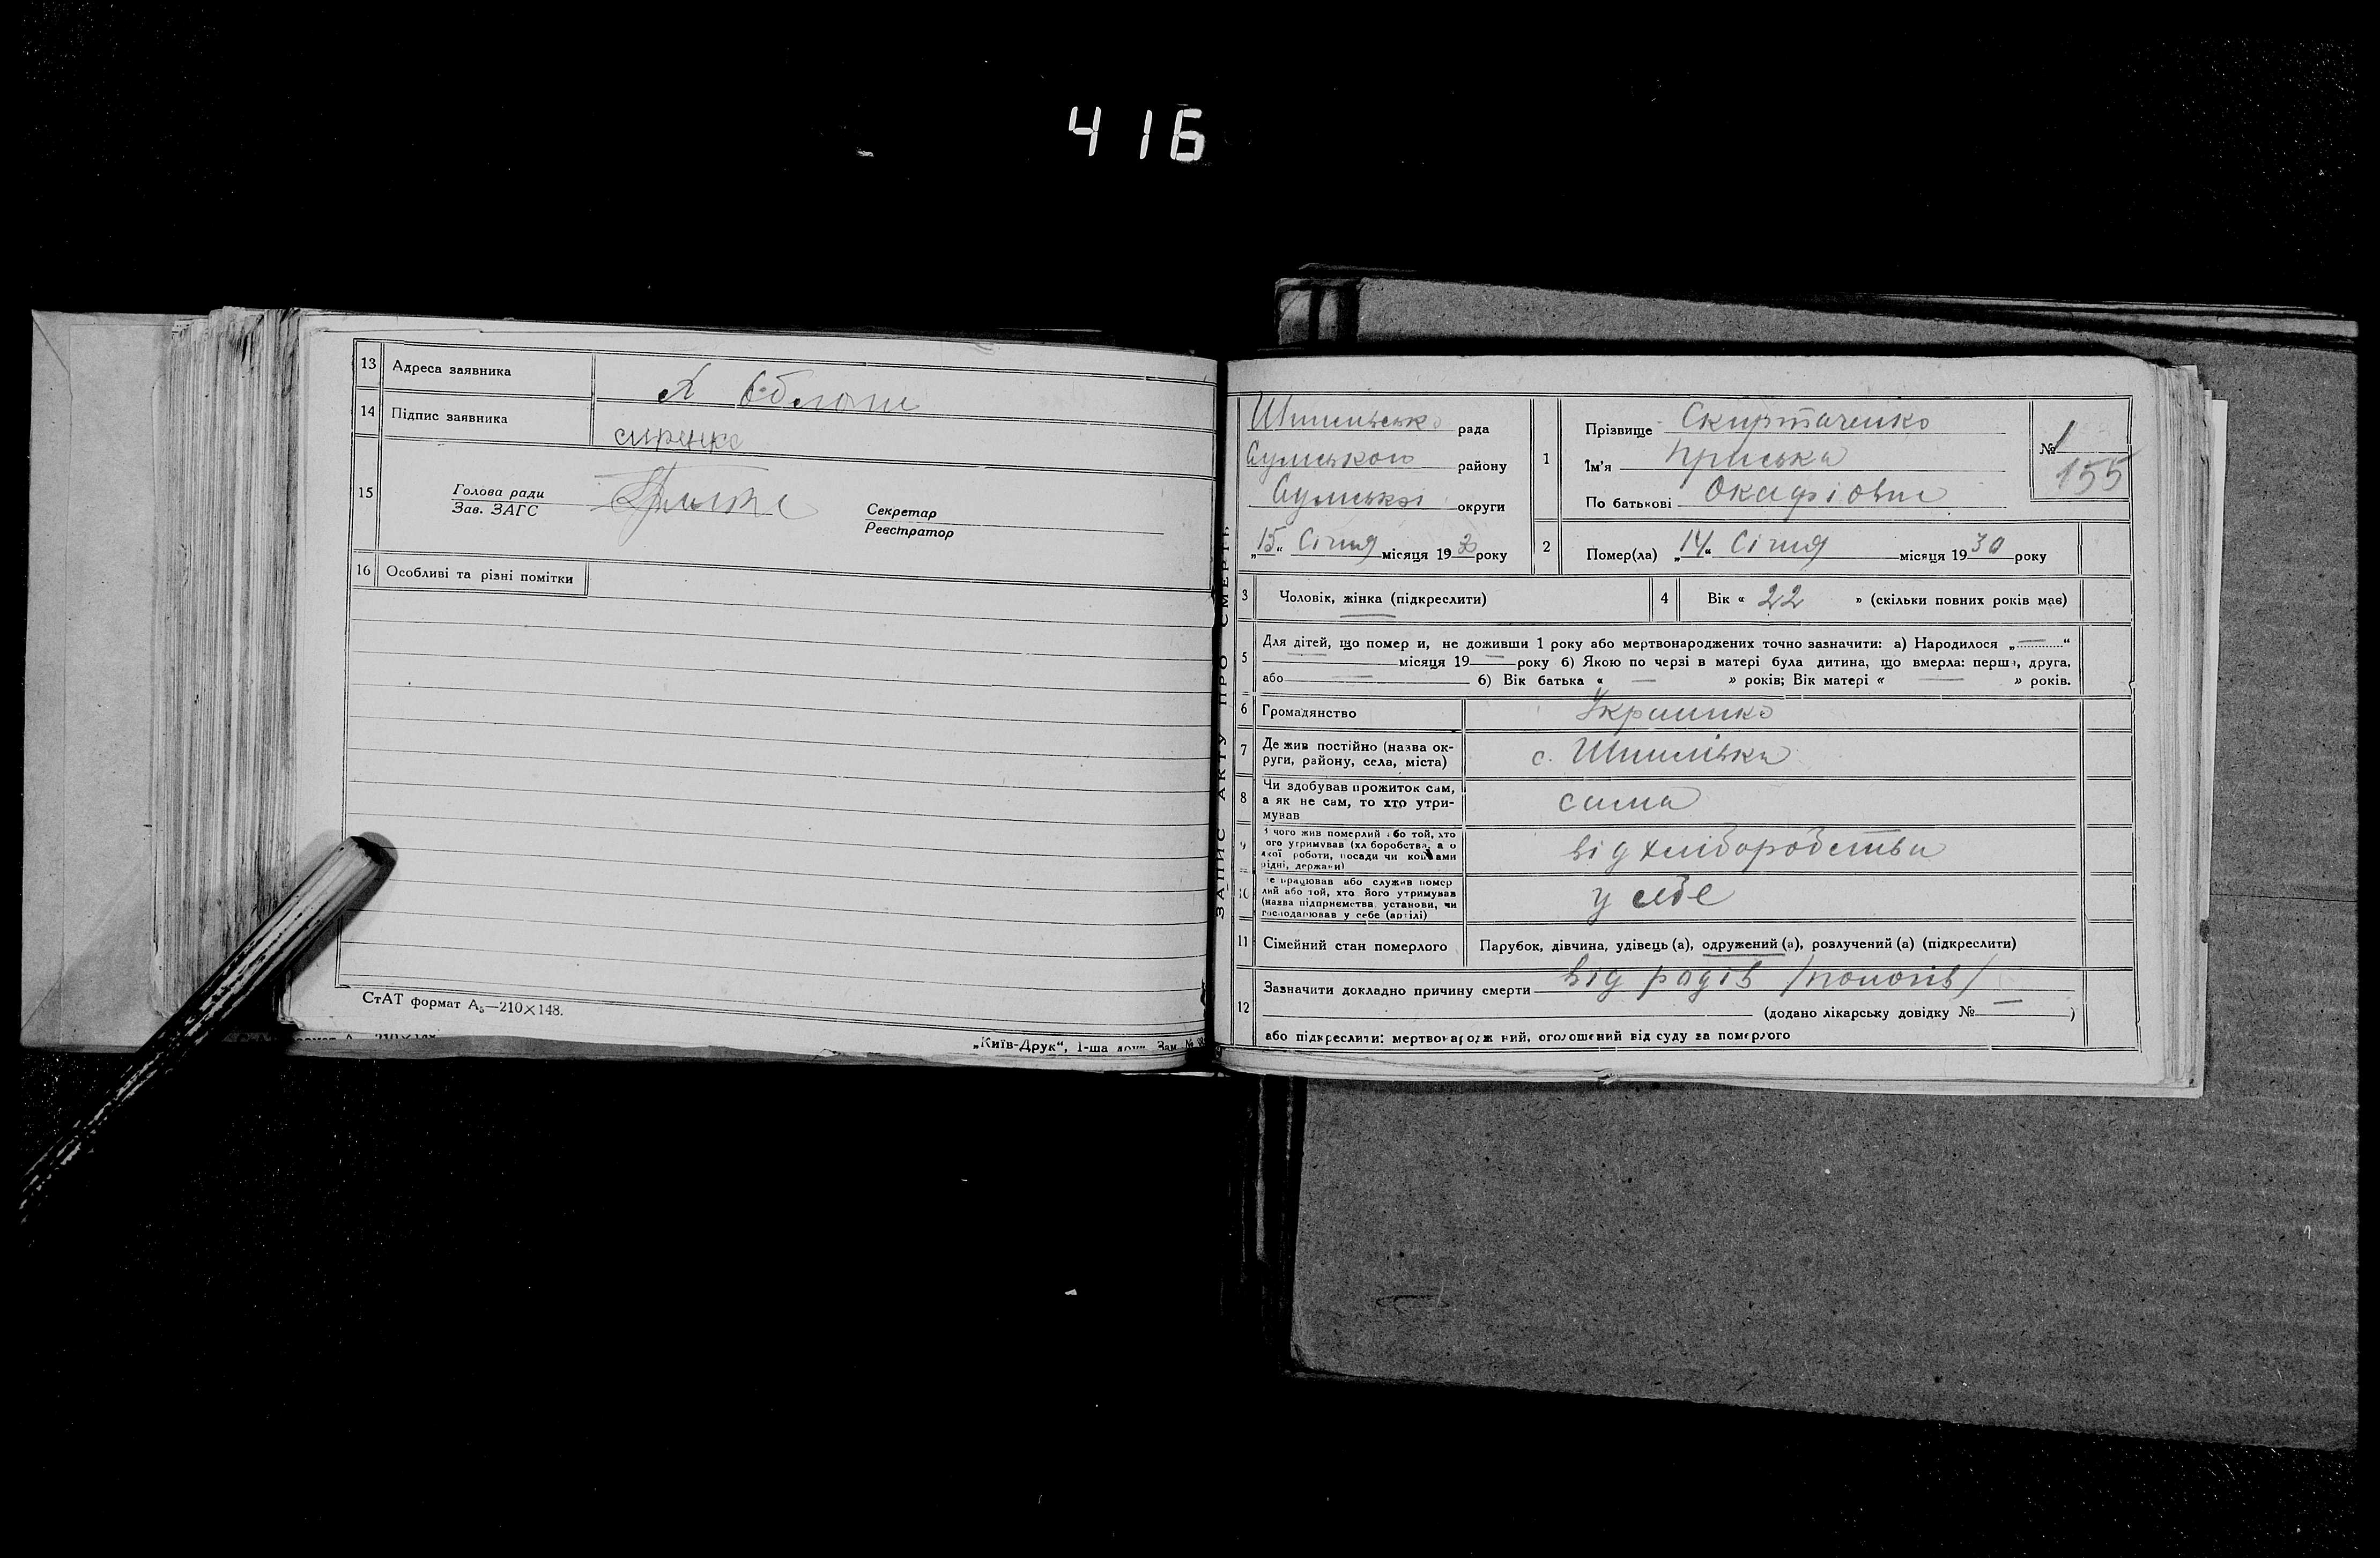 416
13 Адреса заявника
14 Підпис заявника
сиренко
15 Голова ради
Зав. ЗАГС
Секретар
Реєстратор
16 Особливі та різні помітки
СтАТ формат А₅—210×148.
„Київ-Друк“, 1-ша друк. Зам. №
ЗАПИС АКТУ ПРО СМЕРТЬ
рада
Сумського району
Сумської округи
„15“ Січня місяця 1930 року
1 Прізвище Скиртаченко
Ім'я Приська
По батькові
№ 1
155
2 Помер(ла) „14“ Січня місяця 1930 року
3 Чоловік, жінка (підкреслити)
4 Вік « 22 » (скільки повних років мав)
5 Для дітей, що помер и, не доживши 1 року або мертвонароджених точно зазначити: а) Народилося „—“
— місяця 19— року б) Якою по черзі в матері була дитина, що вмерла: перша, друга,
або — б) Вік батька « — » років; Вік матері « — » років.
6 Громадянство Украинка
7 Де жив постійно (назва ок-
руги, району, села, міста)
с. Шпилівка
8 Чи здобував прожиток сам,
а як не сам, то хто утри-
мував
сама
9 З чого жив померлий або той, хто
його утримував (хліборобства, а о
якої роботи, посади чи коштами
рідні, держави)
від хліборобства
10 Де працював або служив помер
лий або той, хто його утримував
(назва підприємства, установи, чи
господарював у себе (артілі)
у себе
11 Сімейний стан померлого Парубок, дівчина, удівець (а), одружений (а), розлучений (а) (підкреслити)
12 Зазначити докладно причину смерти від родів /пологів/
(додано лікарську довідку № — )
або підкреслити: мертвонароджений, оголошений від суду за померлого